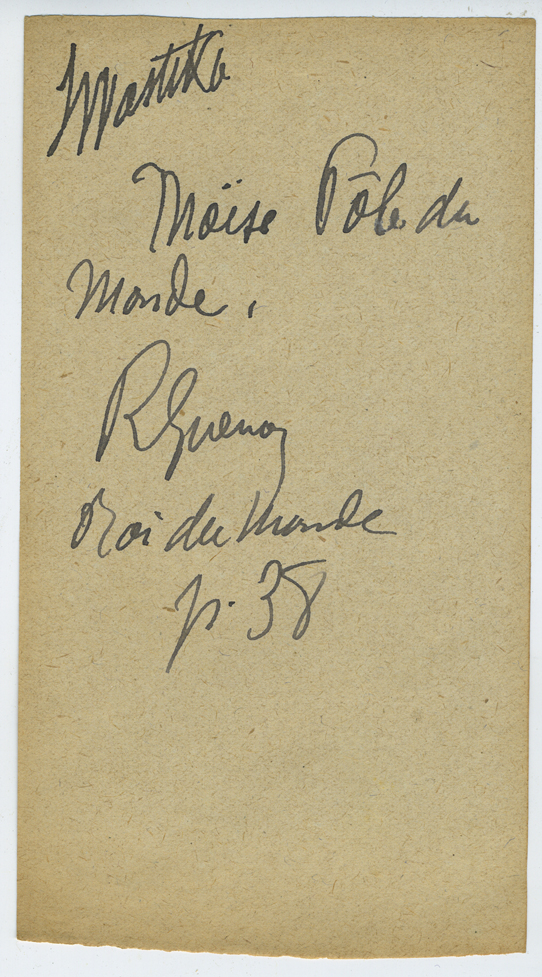 Moïse Pôle du
Monde.
R Guenon
Roi du Monde
p. 38